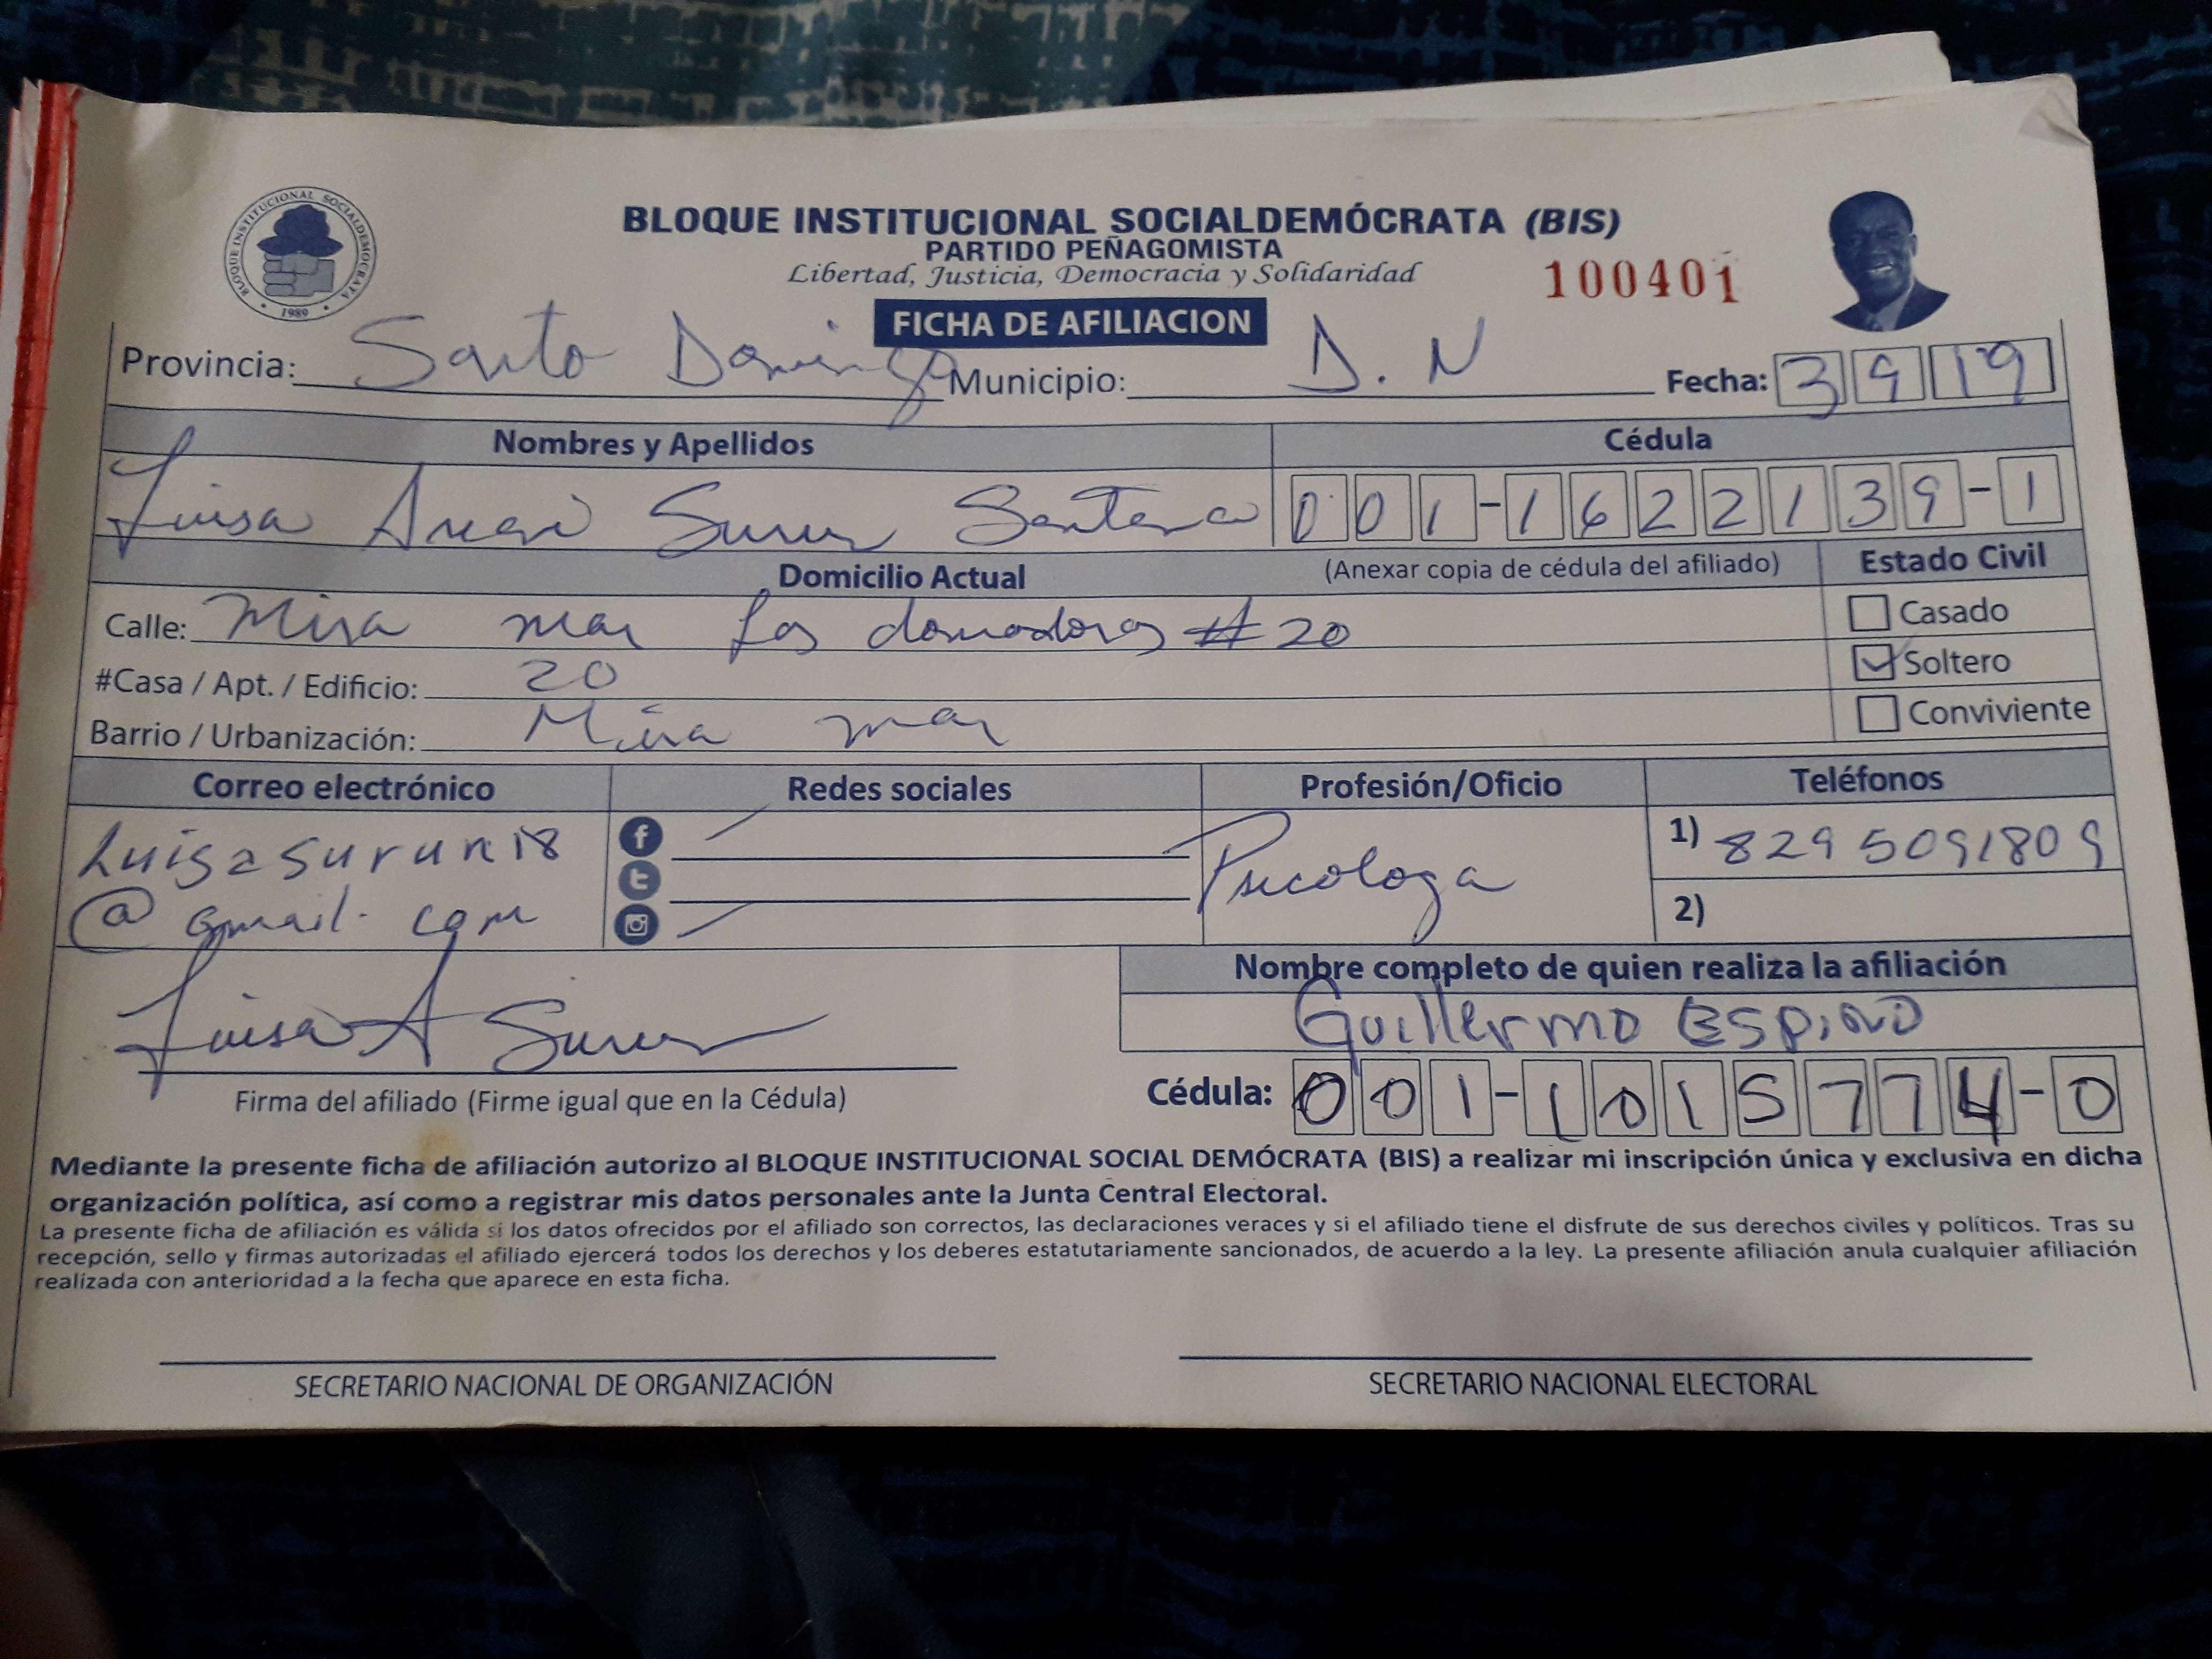 BLOQUE INSTITUCIONAL SOCIALDEMOCRATA
1989
BLOQUE INSTITUCIONAL SOCIALDEMÓCRATA (BIS)
PARTIDO PEÑAGOMISTA
Libertad, Justicia, Democracia y Solidaridad
100401
FICHA DE AFILIACION
Provincia: Santo Domingo Municipio: D.N Fecha: 3 9 19
Nombres y Apellidos Cédula
Luisa Surun Santana 001-1622139-1
Domicilio Actual (Anexar copia de cédula del afiliado) Estado Civil
Calle: Mira mar Los domadores #20 Casado
#Casa / Apt. / Edificio: 20 Soltero
Barrio / Urbanización: Mira mar Conviviente
Correo electrónico Redes sociales Profesión/Oficio Teléfonos
Luisasurun18 Psicologa 1) 829 5091809
@ gmail. com 2)
Nombre completo de quien realiza la afiliación
Luisa A Surun Guillermo Espino
Firma del afiliado (Firme igual que en la Cédula) Cédula: 001-1015774-0
Mediante la presente ficha de afiliación autorizo al BLOQUE INSTITUCIONAL SOCIAL DEMÓCRATA (BIS) a realizar mi inscripción única y exclusiva en dicha
organización política, así como a registrar mis datos personales ante la Junta Central Electoral.
La presente ficha de afiliación es válida si los datos ofrecidos por el afiliado son correctos, las declaraciones veraces y si el afiliado tiene el disfrute de sus derechos civiles y políticos. Tras su
recepción, sello y firmas autorizadas el afiliado ejercerá todos los derechos y los deberes estatutariamente sancionados, de acuerdo a la ley. La presente afiliación anula cualquier afiliación
realizada con anterioridad a la fecha que aparece en esta ficha.
SECRETARIO NACIONAL DE ORGANIZACIÓN SECRETARIO NACIONAL ELECTORAL